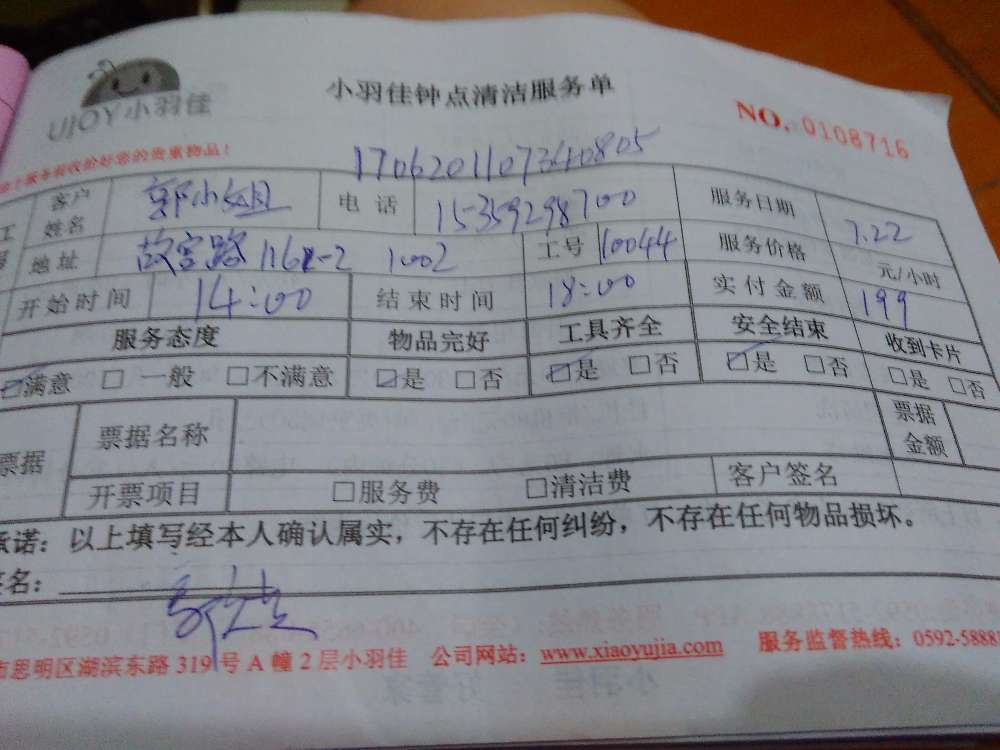 UJOY小羽佳
小羽佳钟点清洁服务单
NO. 0108716
服务前收拾好您的贵重物品!
170620110734080​5
客户姓名 郭小姐 电话 15359298700 服务日期 7.22
地址 故宫路116#-2 1002 工号 10044 服务价格 元/小时
开始时间 14:00 结束时间 18:00 实付金额 199
服务态度 物品完好 工具齐全 安全结束 收到卡片
☑满意 □一般 □不满意 ☑是 □否 ☑是 □否 ☑是 □否 □是 □否
票据 票据名称 票据金额
开票项目 □服务费 □清洁费 客户签名
承诺:以上填写经本人确认属实,不存在任何纠纷,不存在任何物品损坏。
签名:
市思明区湖滨东路319号A幢2层小羽佳 公司网站:www.xiaoyujia.com 服务监督热线:0592-5888